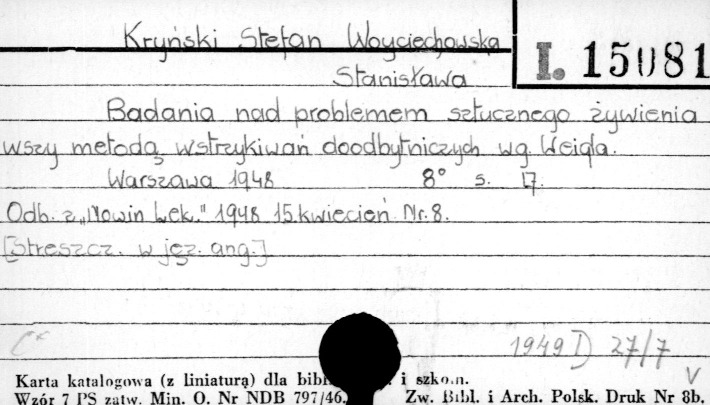 Kryński Stefan Woyciechowska
I. 15081
Stanisława
Badania nad problemem sztucznego żywienia
wszy metodą wstrzykiwań doodbytniczych wg. Weigla.
Warszawa 1948 8° s. 17.
Odb. z „Nowin Lek." 1948 15.kwiecień Nr. 8.
[Streszcz. w jęz. ang.]
1949 I) 27/7
V
Karta katalogowa (z liniaturą) dla i szkoln.
Wzór 7 PS zatw. Min. O. Nr NDB 797/46. Zw. Bibl. i Arch. Polsk. Druk Nr 8b.